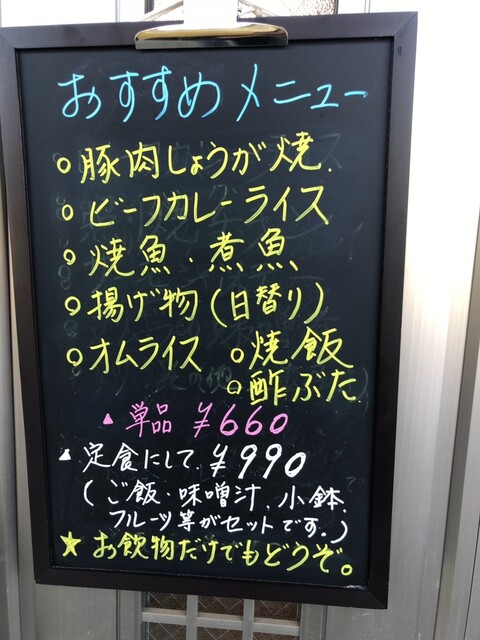 おすすめメニュー
○豚肉しょうが焼.
○ビーフカレーライス
○焼魚・煮魚
○揚げ物(日替り)
○オムライス ○焼飯
○酢ぶた
▲単品 ¥660
▲定食にして ¥990
(ご飯・味噌汁、小鉢、
フルーツ等がセットです。)
★お飲物だけでもどうぞ。